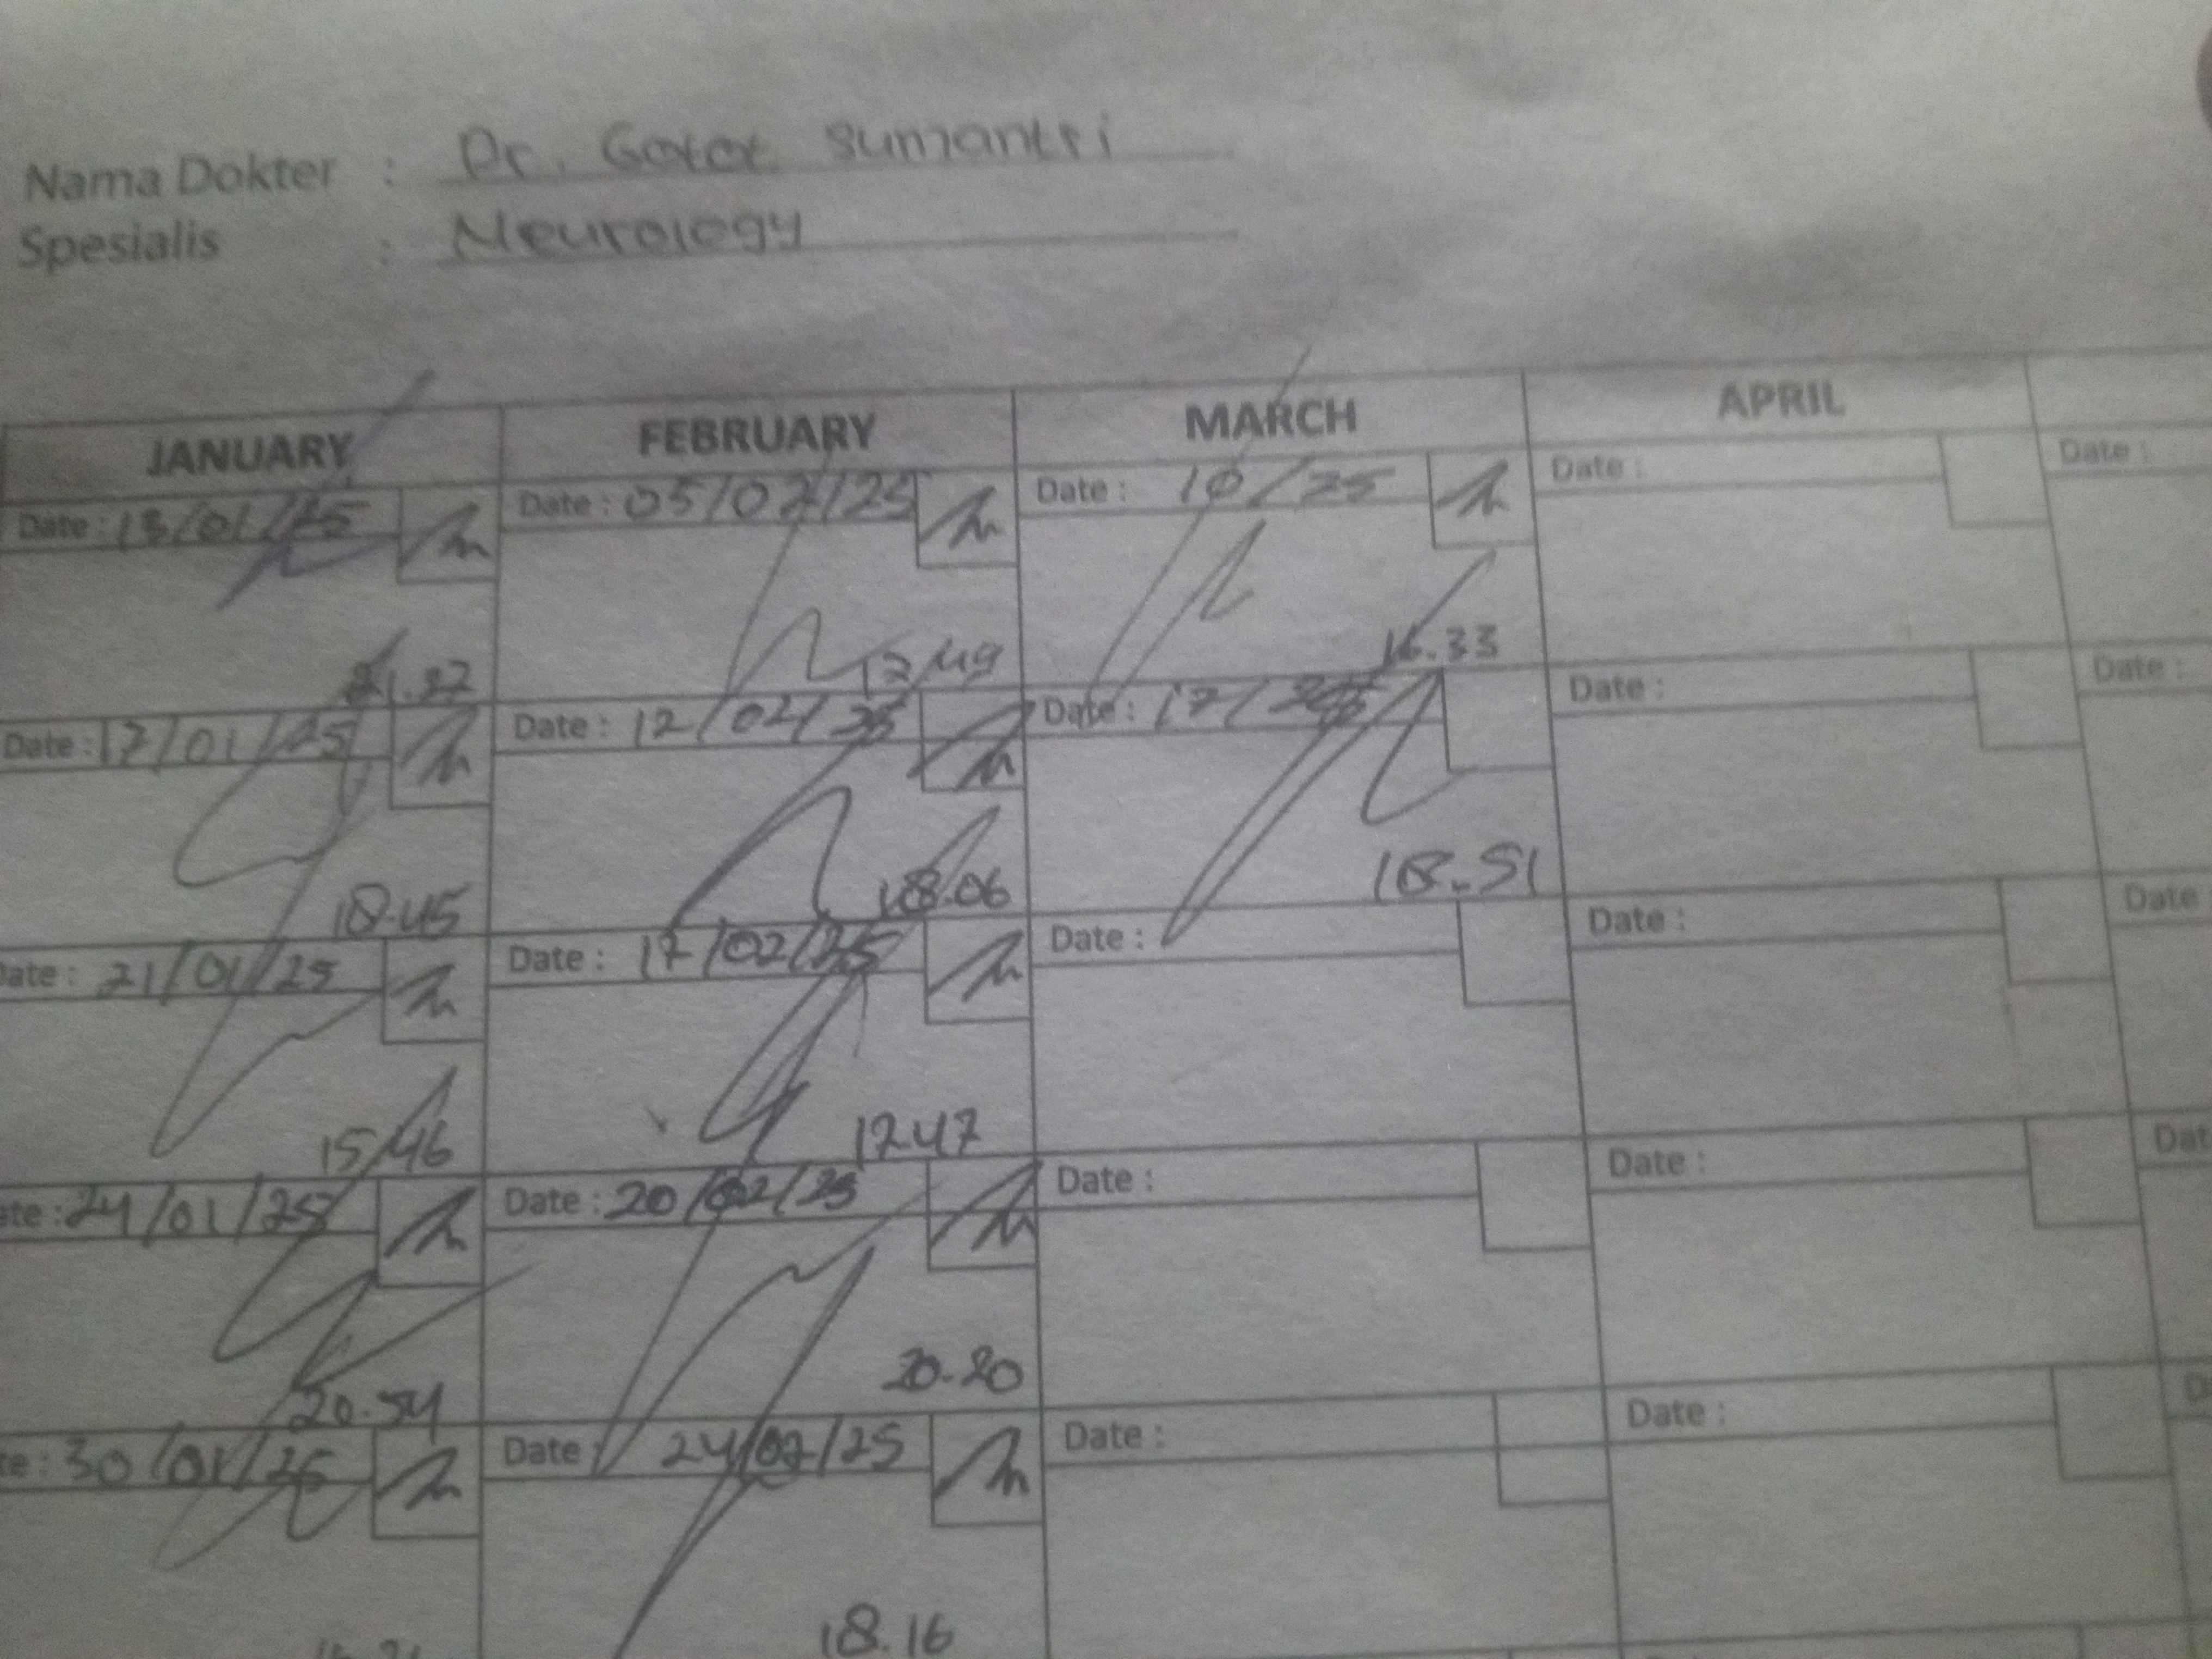 Nama Dokter : Dr. Gatot Sumantri
Spesialis : Neurology
JANUARY FEBRUARY MARCH APRIL
Date : 13/01/25 Date : 05/02/25 Date : 10/25 Date : Date :
21.27 17.49 16.33
Date : 17/01/25 Date : 12/02/25 Date : 17/ Date : Date :
18.45 18.06 18.51
Date : 21/01/25 Date : 17/02/25 Date : Date : Date
15.46 17.47
ate : 24/01/25 Date : 20/02/25 Date : Date : Dat
20.54 20.20
te : 30/01/25 Date : 24/02/25 Date : Date : D
18.16